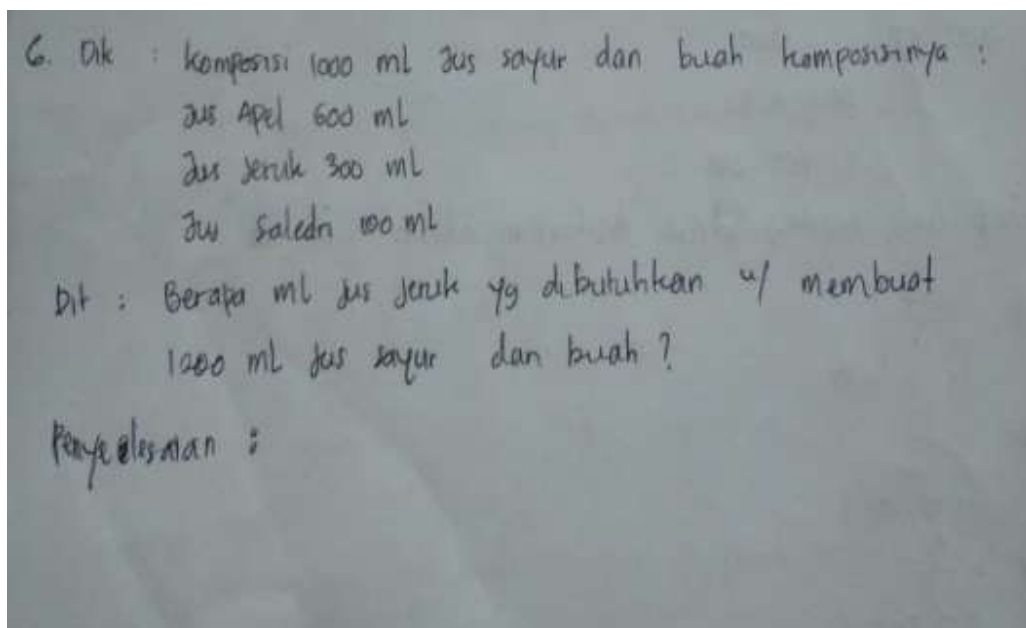 6. Dik : komposisi 1000 ml Jus sayur dan buah komposisinya :
Jus Apel 600 mL
Jus Jeruk 300 mL
Jus Saledri 100 mL
Dit : Berapa ml jus jeruk yg dibutuhkan u/ membuat
1200 ml jus sayur dan buah ?
Penyelesaian :